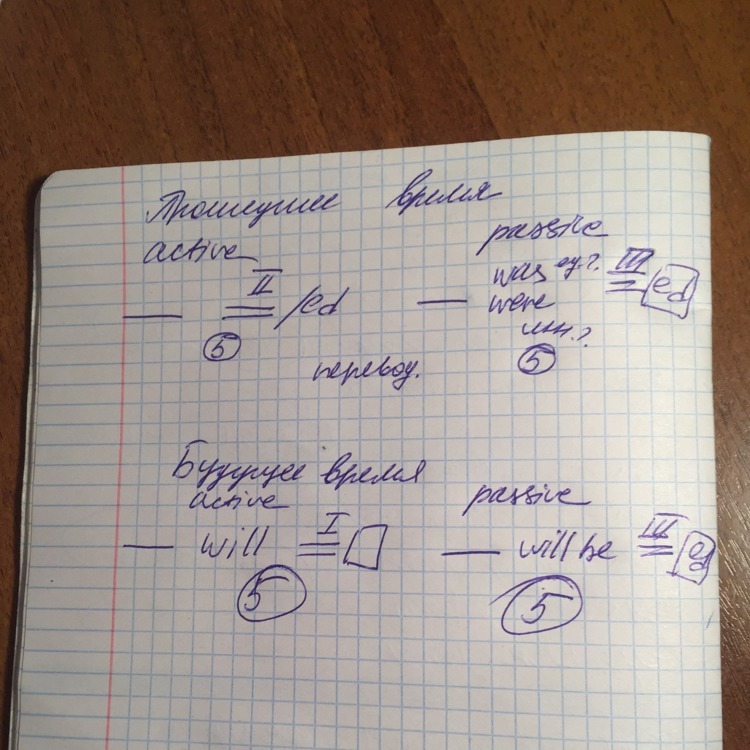 Прошедшее время
active passive
II /ed was ед.ч. III /ed
were
мн.ч.
5 5
перевод.
Будущее время
active passive
will I will be III ed
5 5